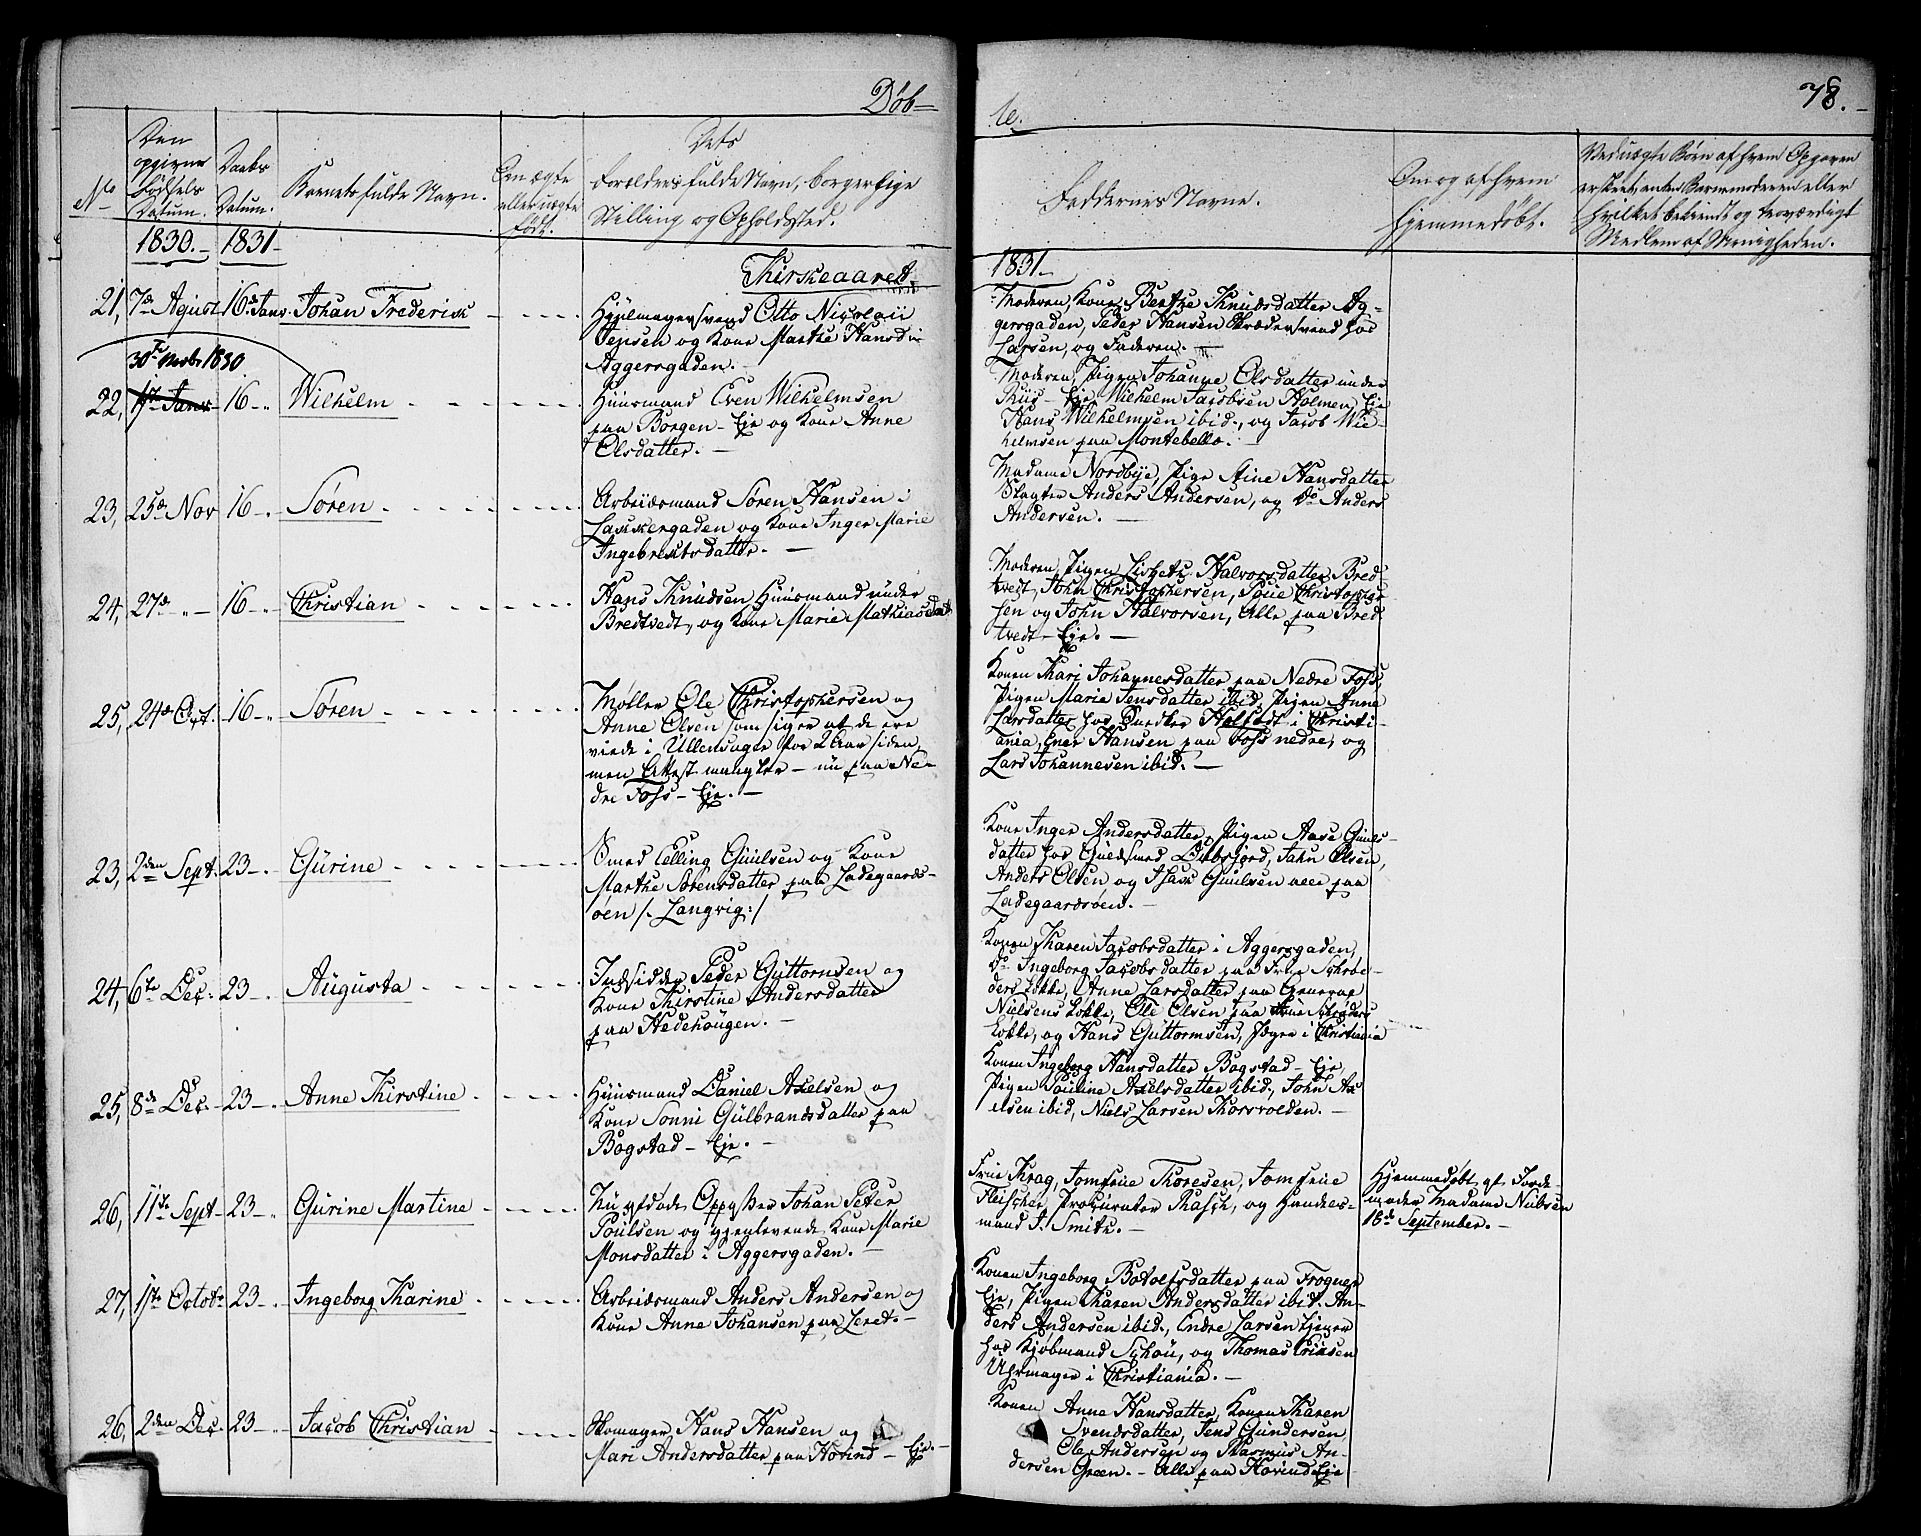 Døb-
te.
78.
No
Den
opgivne
Fødsels
Datum.
Daabs
Datum.
Barnets fulde Navn.
Om ægte
eller uægte
født.
Dets
Forældres fulde Navn, borgerlige
Stilling og Opholdsted.
Faddernes Navne.
Om og af hvem
hjemmedøbt.
Ved uægte Børn af hvem Opgaven
er skeet, enten Barnemoderen eller
hvilket bekiendt og troværdigt
Medlem af Menigheden.
1830.- 1831-
Kirkeaaret
1831-
21, 7de Agust 16de Janr. Johan Frederik
Hjulmagersvend Otto Nicolaii
Jensen og Kone Marthe Hansdr
Aggersgaden.-
Moderen, Kone Berthe Knudsdatter Ag-
gersgaden, Peder Hansen Skrædersvend hos
Larsen, og Faderen.-
30te Novbr 1830
22, 1ste Janr 16-. Wilhelm
Huusmand Even Wilhelmsen
paa Borgen-Eje og Kone Anne
Olsdatter.-
Moderen, Pigen Johanne Olsdatter under
Huus-Eje Wilhelm Jacobsen Holmen Eje
Hans Wilhelmsen ibid., og Jacob Wil-
helmsen paa Montebello.-
23, 25de Nov 16-. Søren
Arbeidsmand Søren Hansen i
Lakkergaden og Kone Inger Marie
Ingebretsdatter.-
Madame Nordbye, Pige Stine Hansdatter
Slagter Anders Andersen, og do Anders
Andersen.-
24, 27de "- 16-. Christian
Hans Knudsen Huusmand under
Bredtvedt, og Kone Marie Mathiasdat
Moderen, Pigen Lisbeth Halvorsdatter Bred-
tvedt, John Christophersen, Povel Christopher-
sen og John Halvorsen, Alle paa Bred-
tvedt-Eje.-
25, 24de Oct. 16-. Søren
Møller Ole Christophersen og
Anne Olsen som siger at de ere
viede i Ullensager for 2 Aar siden,
men Attest mangler- nu paa Ne-
dre Foss-Eje.-
Konen Kari Johannesdatter paa Nedre Foss,
Pigen Marie Jensdatter ibid, Pigen Anne
Larsdatter hos Snedker Holfeldt i Christi-
ania, Even Hansen paa Foss nedre, og
Lars Johannesen ibid.-
23, 2den Sept. 23-. Gurine
Smed Elling Gulsen og Kone
Marthe Sørensdatter paa Ladegaards-
øen /: Langvig:/
Kone Inger Andersdatter, Pigen Aase Guuls-
datter hos Guldsmed Dibsjord, John Olsen,
Anders Olsen og Isak Guulsen alle paa
Ladegaardsøen.-
24, 6te Dec. 23-. Augusta
Indsidder Peder Guttormsen og
Kone Kirstine Andersdatter
paa Hedehougen.-
Konen Karen Jacobsdatter i Aggersgaden,
do Ingeborg Jacobsdatter paa Frue Schrø-
ders Løkke, Anne Larsdatter paa General
Nielsens Løkke, Ole Olsen paa Frue Schrøders
Løkke, og Hans Guttormsen, Jæger i Christiania
25, 8de Dec. 23-. Anne Kirstine
Huusmand Daniel Axelsen og
Kone Jonni Gulbrandsdatter paa
Bogstad-Eje.-
Konen Ingeborg Hansdatter Bogstad-Eje,
Pigen Pauline Axelsdatter ibid, John Ax-
elsen ibid, Niels Larsen Thorsvolden.-
26, 11te Sept. 23-. Gurine Martine
Nu afdøde Oppasser Johan Peter
Poulsen og gjenlevende Kone Marie
Monsdatter i Aggersgaden.-
Frue Krag, Jomfrue Thoresen, Jomfrue
Fleischer, Procurator Rasch, og Handels-
mand J. Smith.-
Hjemmedøbt af Jorde-
moder Madame Nielsen
18de September.-
27, 11te Octob. 23-. Ingeborg Karine
Arbeidsmand Anders Andersen og
Kone Anne Johansen paa Leret.-
Konen Ingeborg Botolfsdatter paa Frogner
Eje, Pigen Karen Andersdatter ibid. An-
ders Andersen ibid., Endre Larsen tjener
hos Kjøbmand Schou, og Thomas Eriksen
Uhrmager i Christiania.-
26, 2den Dec. 23-. Jacob Christian
Skomager Hans Hansen og
Mari Andersdatter paa Hovind-Eje.-
Konen Anne Hansdatter, Konen Karen
Svendsdatter, Jens Gundersen
Ole Andersen og Rasmus An-
dersen Green.- Alle paa Hovind Eje